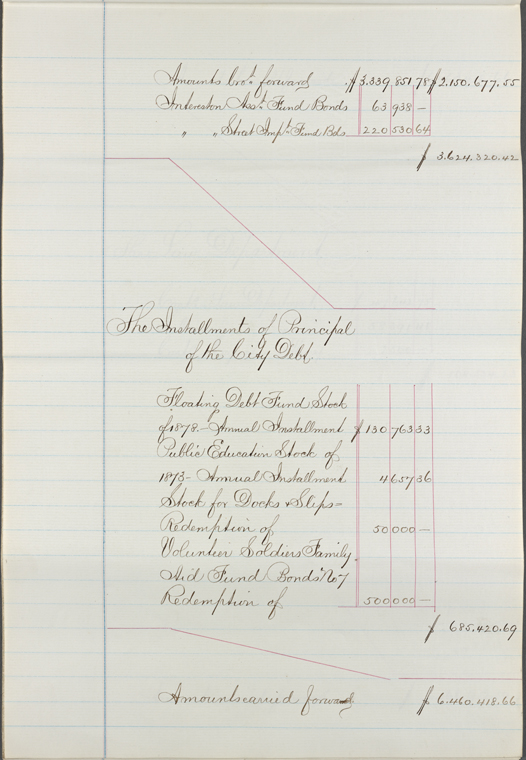 Amounts bro.t forward $3.339,851,78 $2.150.677.55
Interest on Ass.t Fund Bonds 63 938 —
" " Street Imp.t Fund Bds. 220 530 64
$ 3.624.320.42
The Installments of Principal
of the City Debt.
Floating Debt Fund Stock
of 1878. — Annual Installment $ 130 763 33
Public Education Stock of
1873 - Annual Installment 4 657 36
Stock for Docks & Slips =
Redemption of 50 000 —
Volunteer Soldiers Family
Aid Fund Bonds No 7
Redemption of 500 000 —
$ 685.420.69
Amounts carried forward $ 6.460.418.66